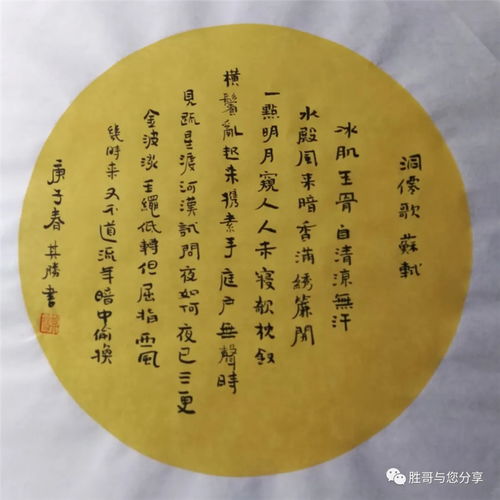 洞僊歌 蘇軾
冰肌玉骨自清涼無汗
水殿風来暗香滿綉簾開
一點明月窺人人未寢欹枕釵
橫鬢亂起来携素手庭戶無聲時
見疏星渡河漢試問夜如何夜已三更
金波淡玉繩低轉但屈指西風
幾時来又不道流年暗中偷換
庚子春 其勝書
胜哥与您分享